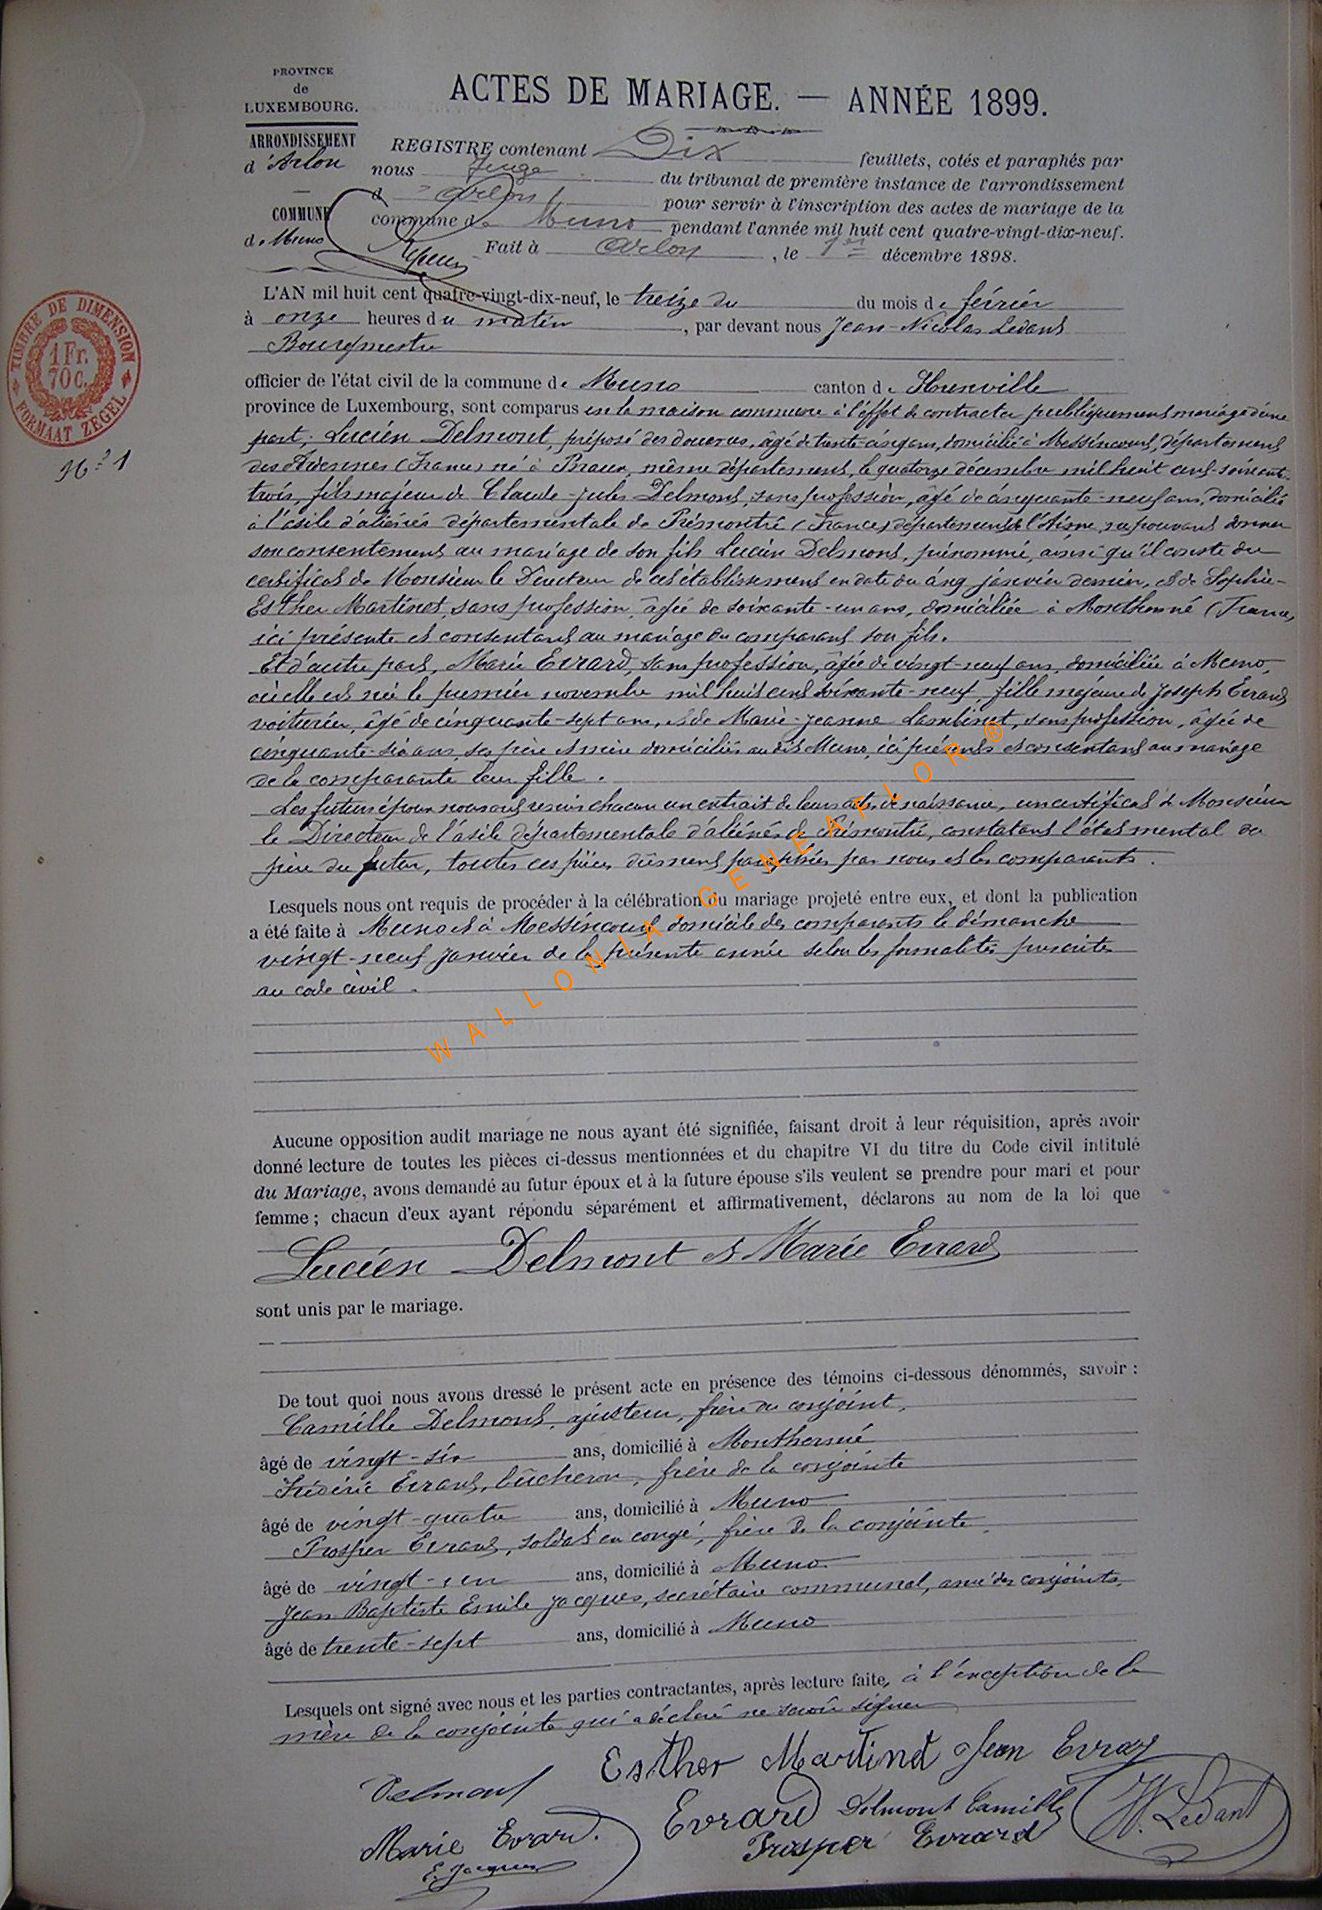 PROVINCE
de
LUXEMBOURG.
ARRONDISSEMENT
d'Arlon
COMMUNE
de Muno
ACTES DE MARIAGE. — ANNÉE 1899.
REGISTRE contenant Dix feuillets, cotés et paraphés par
nous Juge du tribunal de première instance de l'arrondissement
d'Arlon pour servir à l'inscription des actes de mariage de la
commune de Muno pendant l'année mil huit cent quatre-vingt-dix-neuf.
Fait à Arlon, le 1er décembre 1898.
TIMBRE DE DIMENSION
1 Fr.
70 C.
FORMAAT ZEGEL
N° 1
L'AN mil huit cent quatre-vingt-dix-neuf, le treize du du mois de février
à onze heures du matin, par devant nous Jean-Nicolas Ledant
Bourgmestre
officier de l'état civil de la commune de Muno canton de Florenville
province de Luxembourg, sont comparus en la maison commune à l'effet de contracter publiquement mariage d'une
part, Lucien Delmont, préposé des douanes, âgé de trente-cinq ans, domicilié à Messincourt, département
des Ardennes (France) né à Braux, même département, le quatorze décembre mil huit cent soixante-
trois, fils majeur de Claude-Jules Delmont, sans profession, âgé de cinquante-neuf ans, domicilié
à l'asile d'aliénés départementale de Prémontré (France) département de l'Aisne, ne pouvant donner
son consentement au mariage de son fils Lucien Delmont, prénommé, ainsi qu'il conste du
certificat de Monsieur le Directeur de cet établissement en date du cinq janvier dernier, et de Sophie-
Esther Martinet, sans profession, âgée de soixante-un ans, domiciliée à Monthermé (France)
ici présente et consentant au mariage du comparant son fils.
Et d'autre part, Marie Evrard, sans profession, âgée de vingt-neuf ans, domiciliée à Muno,
où elle est née le premier novembre mil huit cent soixante-neuf, fille majeure de Joseph Evrard
voiturier, âgé de cinquante-sept ans, et de Marie-Jeanne Lambinet, sans profession, âgée de
cinquante-six ans, ses père et mère domiciliés au dit Muno, ici présents et consentant au mariage
de la comparante leur fille.
Les futurs époux nous ont remis chacun un extrait de leurs actes de naissance, un certificat de Monsieur
le Directeur de l'asile départementale d'aliénés de Prémontré, constatant l'état mental du
père du futur, toutes ces pièces dûment paraphées par nous et les comparants.
Lesquels nous ont requis de procéder à la célébration du mariage projeté entre eux, et dont la publication
a été faite à Muno et à Messincourt domicile des comparants le dimanche
vingt-neuf janvier de la présente année selon les formalités prescrites
au code civil.
WALLONIA-GENEAFLOR®
Aucune opposition audit mariage ne nous ayant été signifiée, faisant droit à leur réquisition, après avoir
donné lecture de toutes les pièces ci-dessus mentionnées et du chapitre VI du titre du Code civil intitulé
du Mariage, avons demandé au futur époux et à la future épouse s'ils veulent se prendre pour mari et pour
femme ; chacun d'eux ayant répondu séparément et affirmativement, déclarons au nom de la loi que
Lucien Delmont et Marie Evrard
sont unis par le mariage.
De tout quoi nous avons dressé le présent acte en présence des témoins ci-dessous dénommés, savoir :
Camille Delmont, ajusteur, frère du conjoint,
âgé de vingt-six ans, domicilié à Monthermé
Frédéric Evrard, bûcheron, frère de la conjointe
âgé de vingt-quatre ans, domicilié à Muno
Prosper Evrard, soldat en congé, frère de la conjointe,
âgé de vingt-un ans, domicilié à Muno
Jean Baptiste Emile Jacques, secrétaire communal, ami des conjoints,
âgé de trente-sept ans, domicilié à Muno
Lesquels ont signé avec nous et les parties contractantes, après lecture faite, à l'exception de la
mère de la conjointe qui a déclaré ne savoir signer
Delmont Esther Martinet Jean Evrard
Marie Evrard. Evrard Delmont Camille N. Ledant
E. Jacques Prosper Evrard